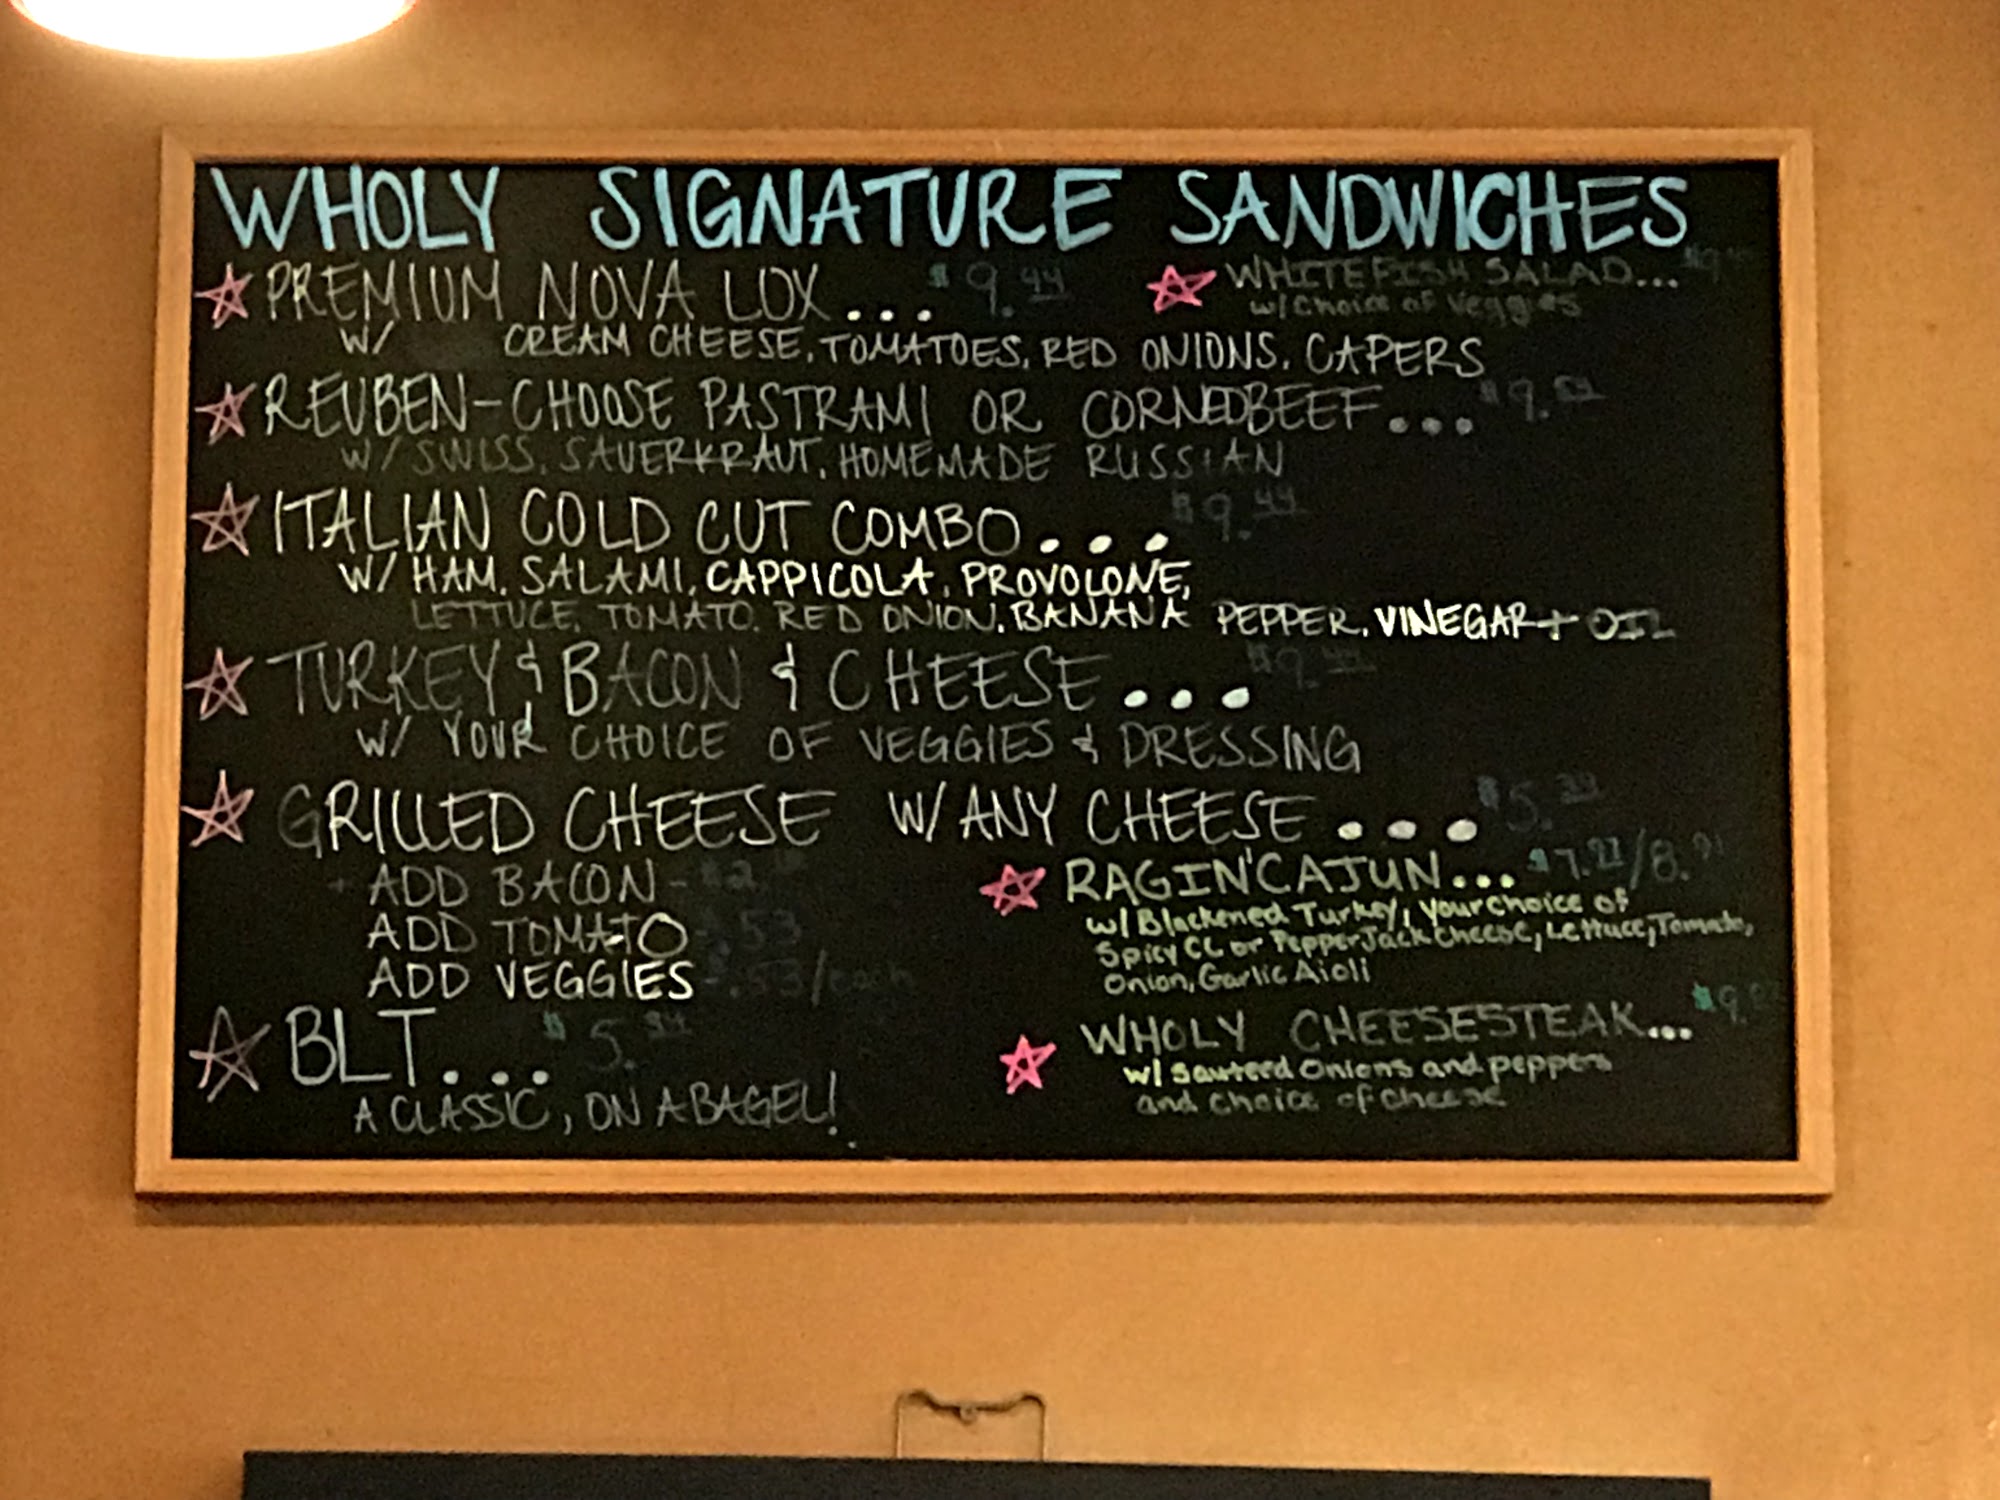 WHOLY SIGNATURE SANDWICHES
PREMIUM NOVA LOX... $9.44
W/ CREAM CHEESE, TOMATOES, RED ONIONS, CAPERS
WHITEFISH SALAD...
w/ Choice of Veggies
REUBEN-CHOOSE PASTRAMI OR CORNEDBEEF...
W/ SWISS, SAUERKRAUT, HOMEMADE RUSSIAN
ITALIAN COLD CUT COMBO... $9.44
W/ HAM, SALAMI, CAPPICOLA, PROVOLONE,
LETTUCE, TOMATO, RED ONION, BANANA PEPPER, VINEGAR + OIL
TURKEY & BACON & CHEESE... $9.44
W/ YOUR CHOICE OF VEGGIES & DRESSING
GRILLED CHEESE W/ ANY CHEESE...
ADD BACON -
ADD TOMATO - .53
ADD VEGGIES - .53/each
BLT...
A CLASSIC, ON A BAGEL!
RAGIN' CAJUN...
w/ Blackened Turkey, Your choice of
Spicy CC or PepperJack Cheese, Lettuce, Tomato,
Onion, Garlic Aioli
WHOLY CHEESESTEAK...
w/ Sauteed Onions and peppers
and choice of cheese